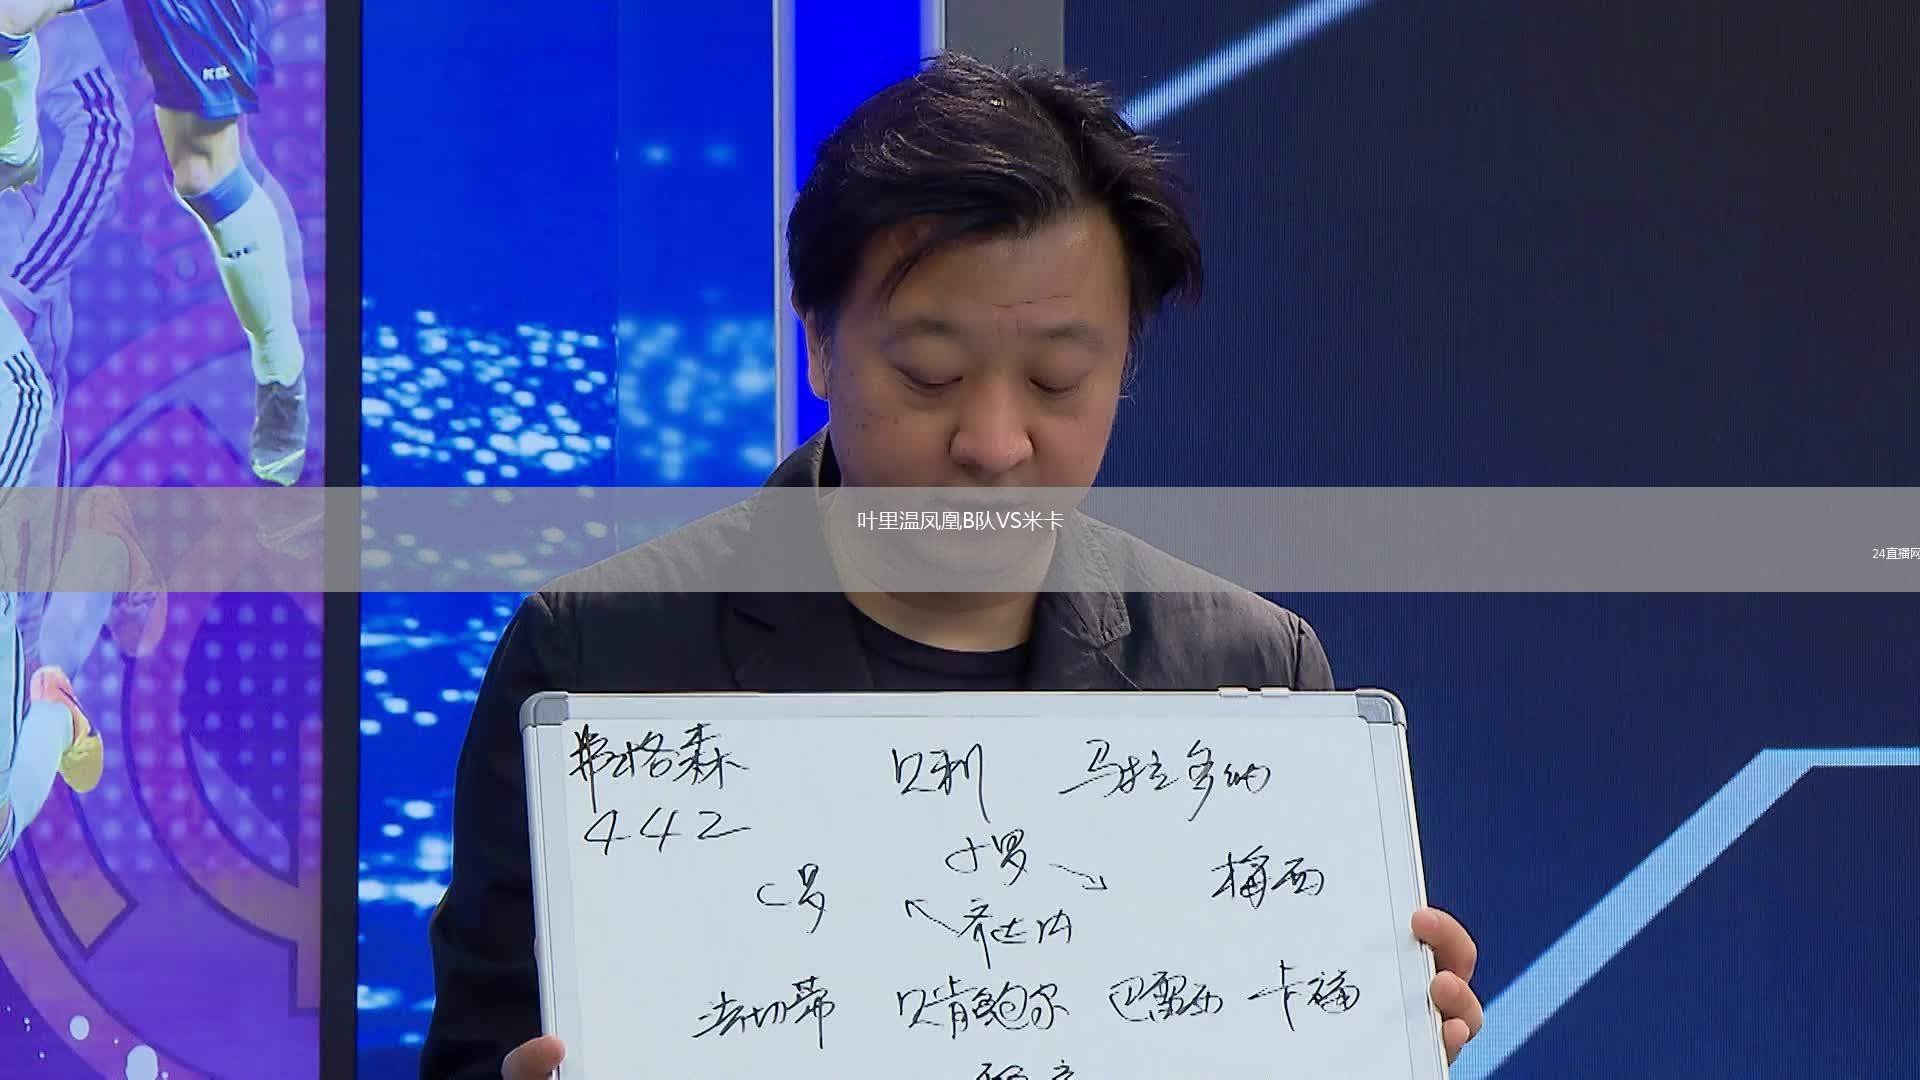 KEL
叶里温凤凰B队VS米卡
24直播网
弗格森 贝利 马拉多纳
442
小罗
C罗 梅西
齐达内
法切蒂 贝肯鲍尔 巴雷西 卡福